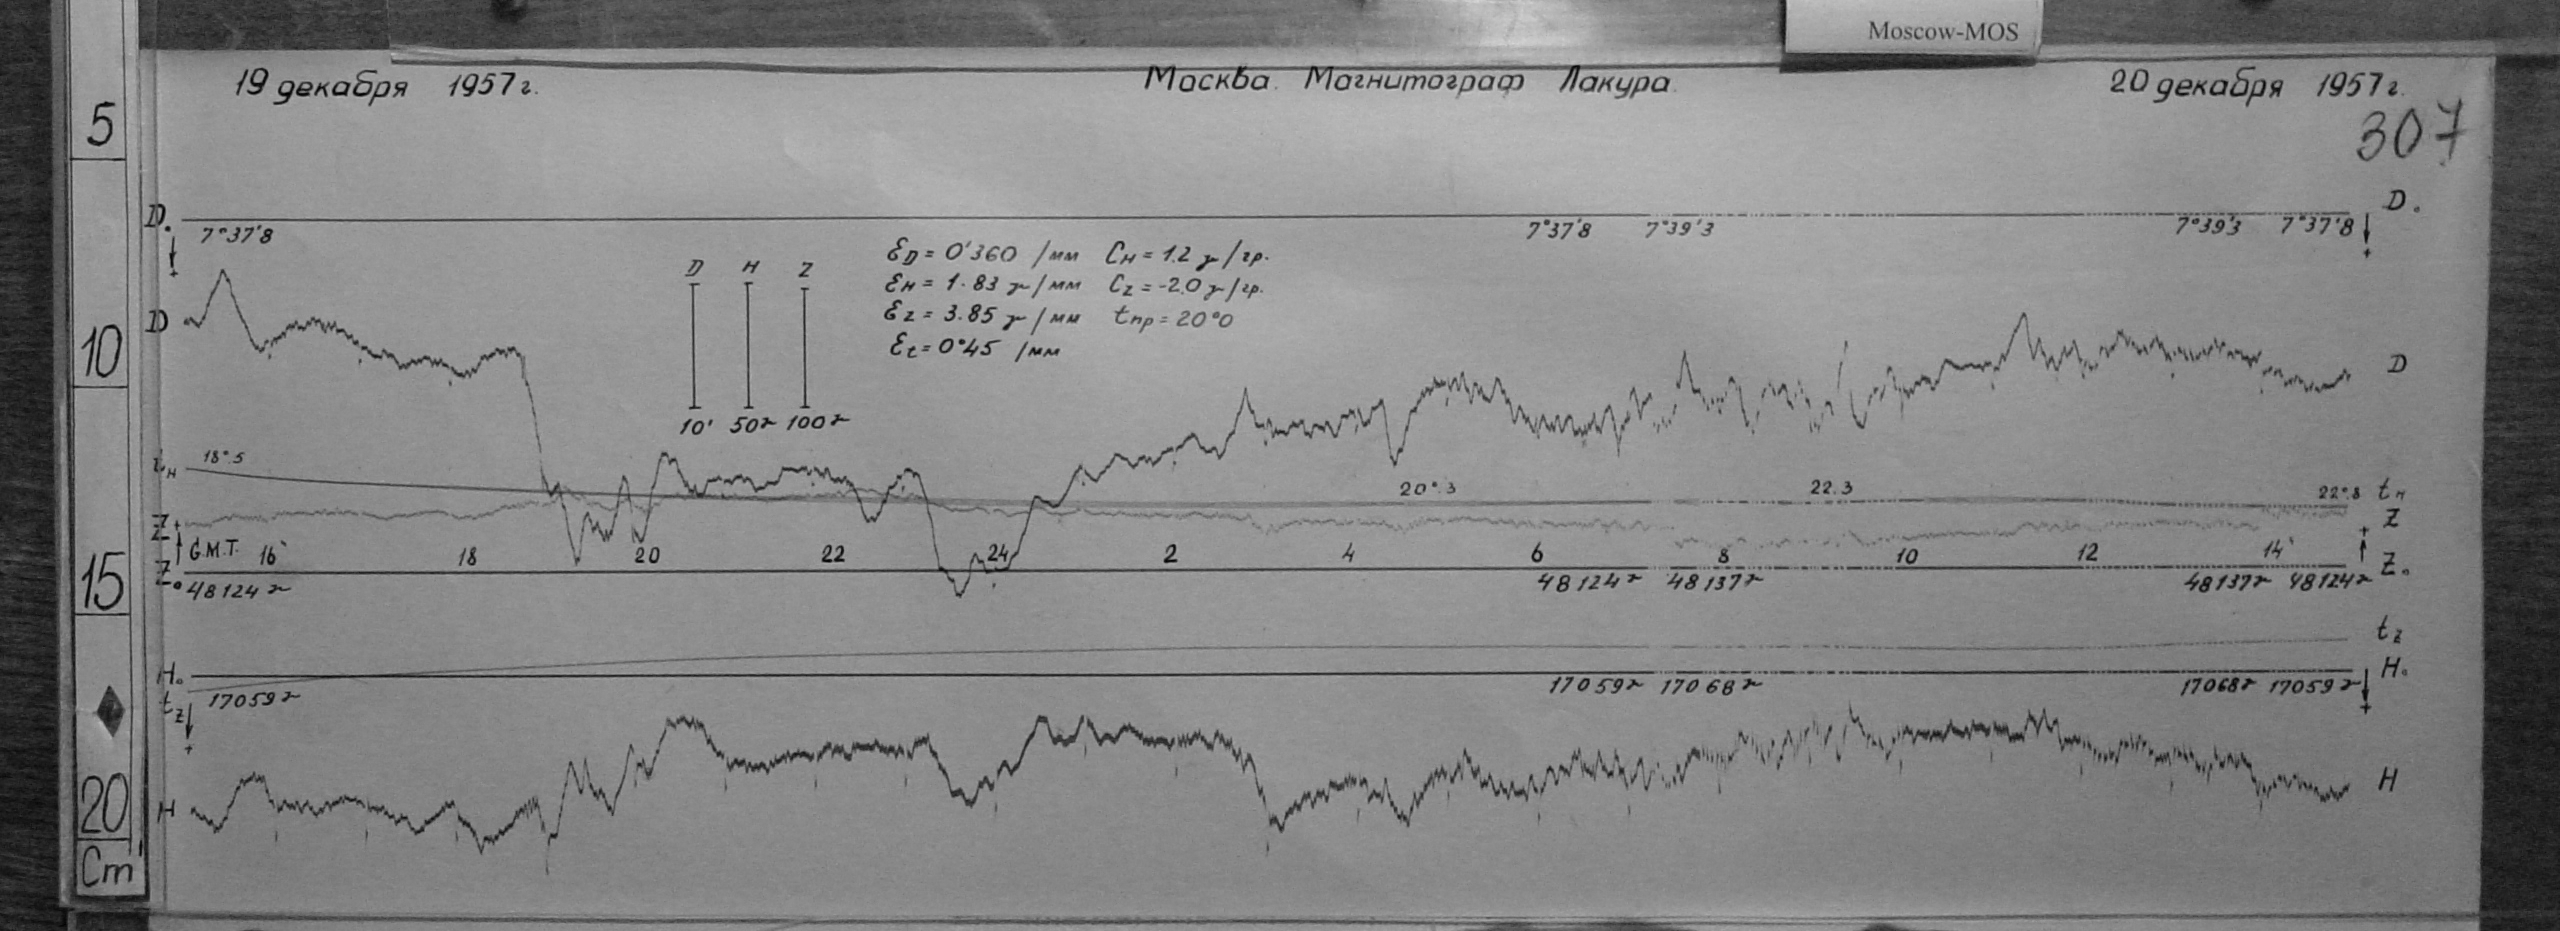 Moscow-MOS
19 декабря 1957 г. Москва. Магнитограф Лакура. 20 декабря 1957 г.
307
5
D. D.
7°37'8 7°37'8 7°39'3 7°39'3 7°37'8
+ +
D H Z
10' 50γ 100γ
ε_D = 0'360 /мм C_H = 1.2 γ/гр.
ε_H = 1.83 γ/мм C_Z = -2.0 γ/гр.
ε_Z = 3.85 γ/мм t_пр = 20°0
ε_t = 0°45 /мм
10
D D
t_H 18°5 20°.3 22.3 22°.8 t_H
Z Z
G.M.T. 16 18 20 22 24 2 4 6 8 10 12 14
15
Z₀ Z₀
48124γ 48124γ 48137γ 48137γ 48124γ
t_Z
H₀ H₀
t_Z 17059γ 17059γ 17068γ 17068γ 17059γ
+ +
H H
20
Cm